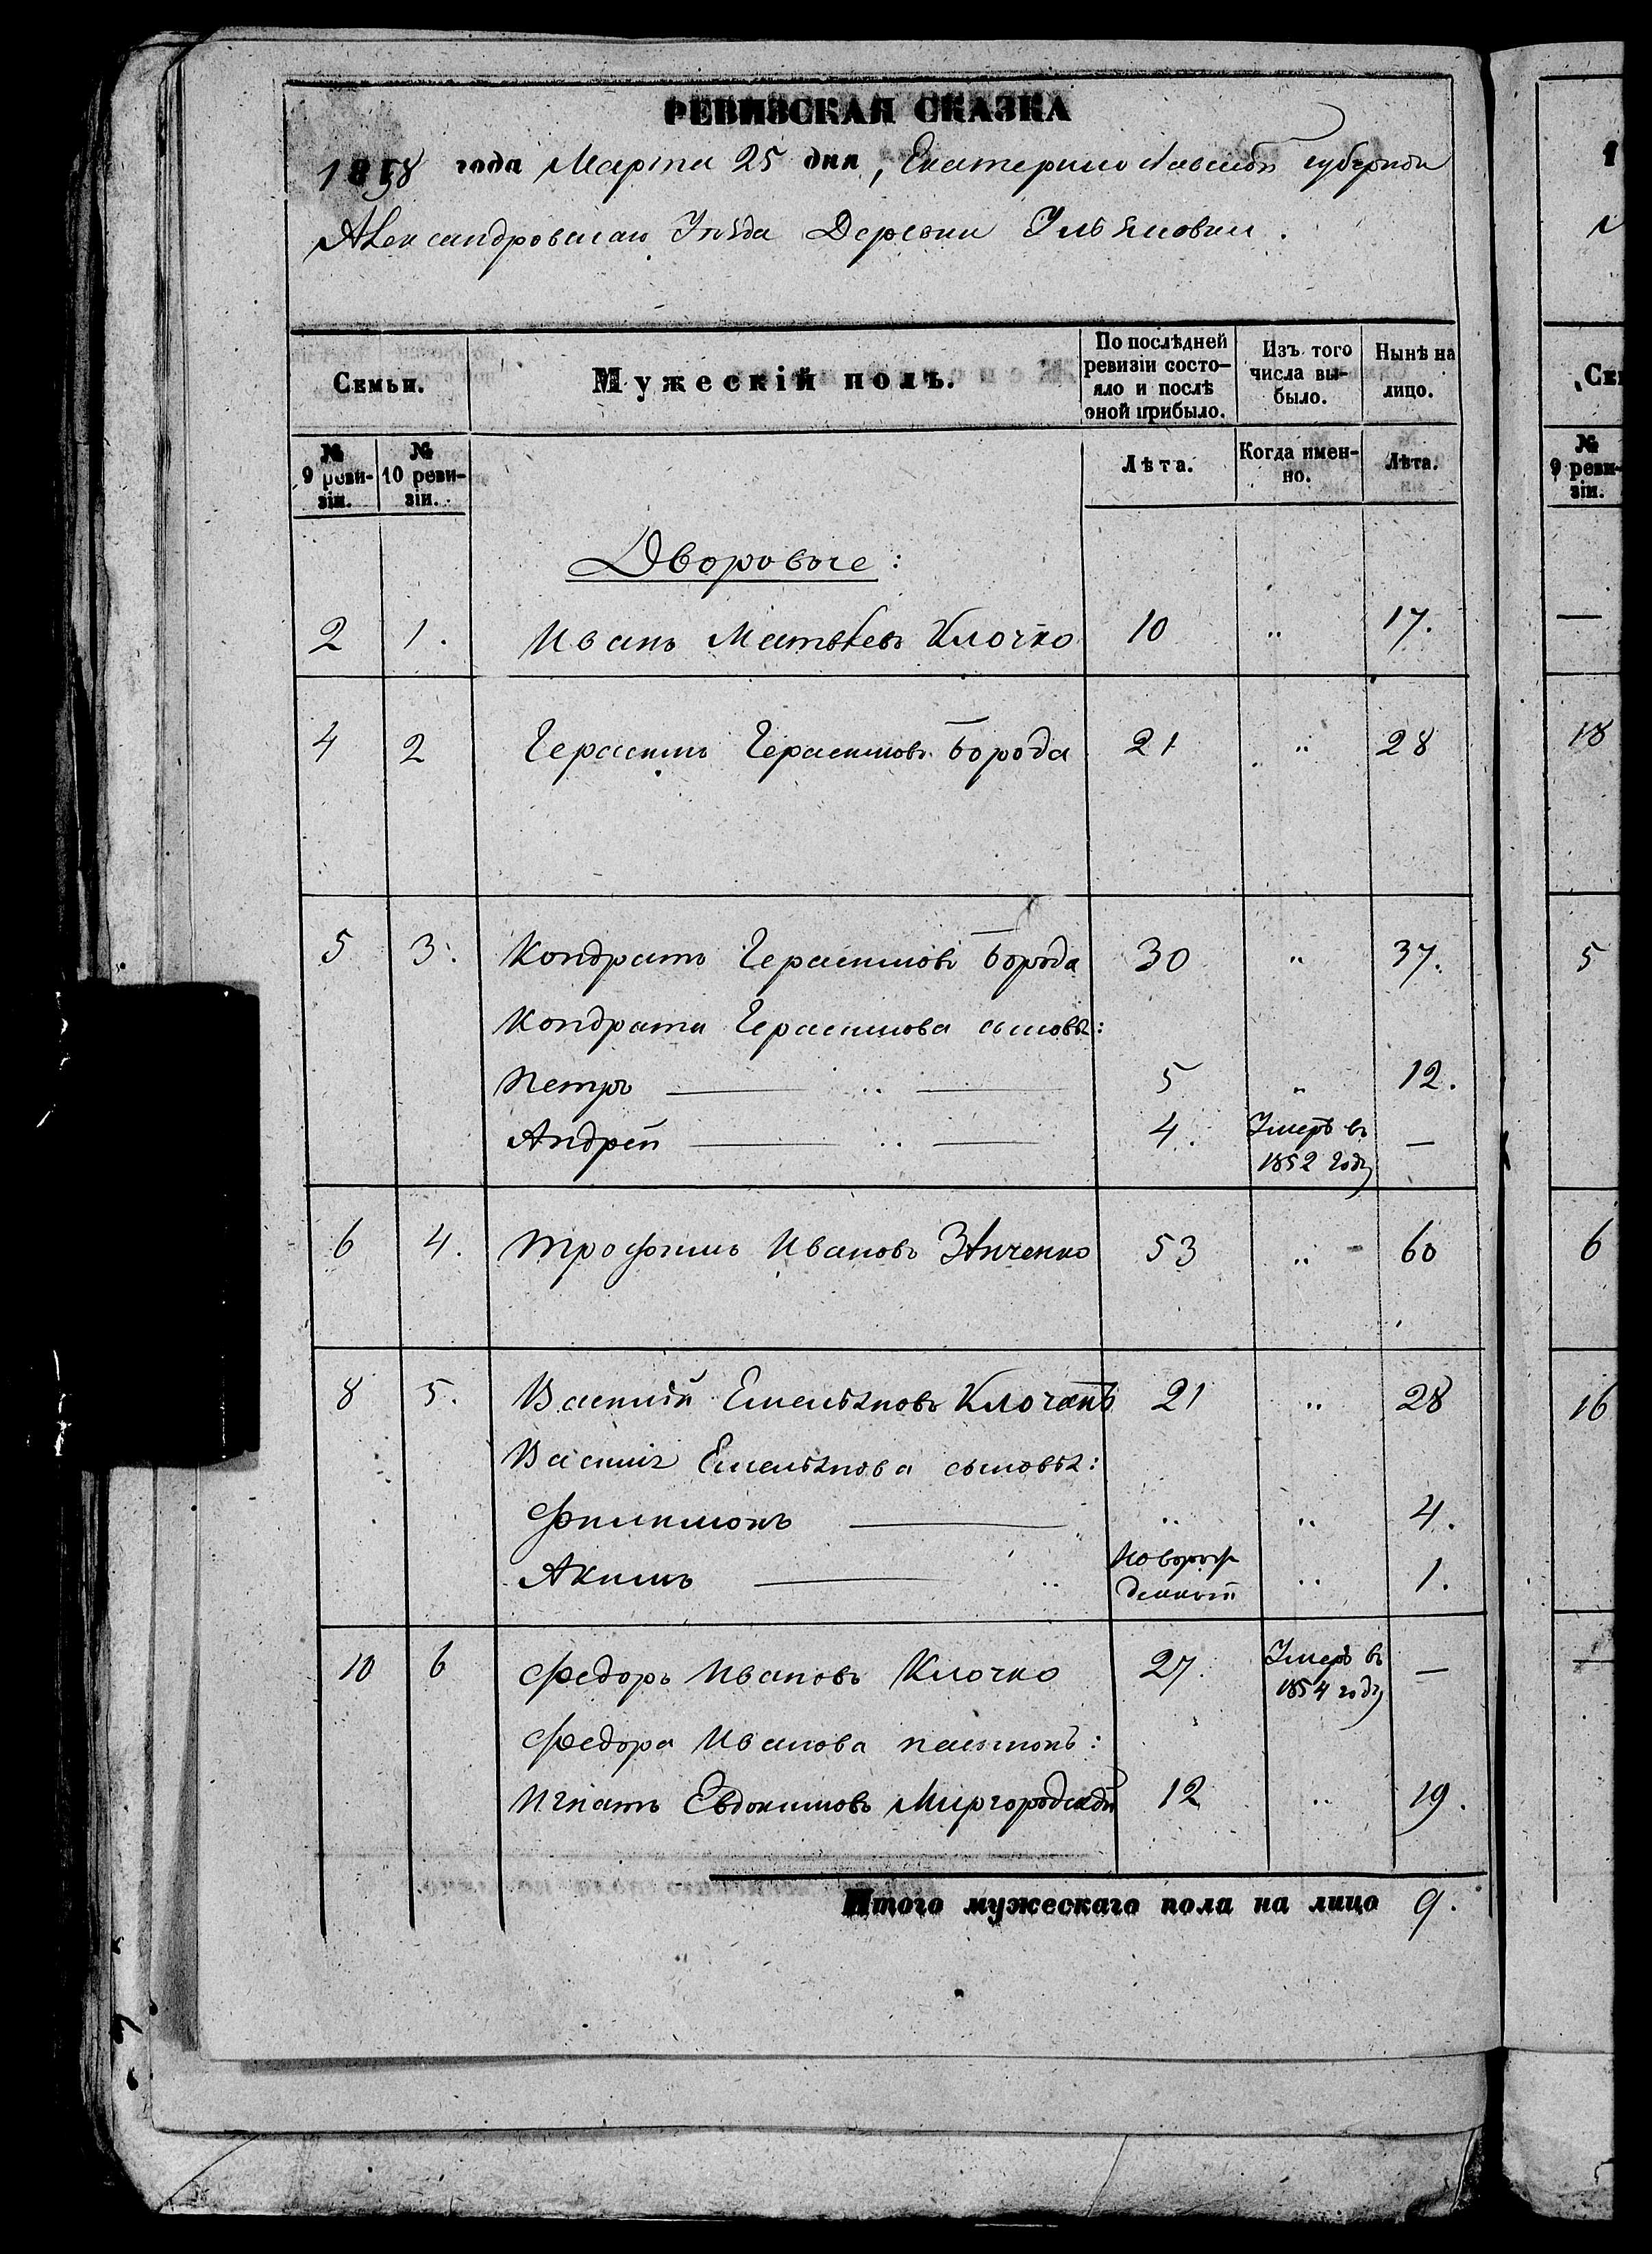 РЕВИЗСКАЯ СКАЗКА
1858 года Марта 25 дня, Екатеринославской губернiи
Александровскаго Уѣзда Деревни Ульяновки.
Семьи. Мужескiй полъ. По послѣдней ревизiи состо- Изъ того Нынѣ на
яло и послѣ оной прибыло. числа вы- было. лицо.
№ 9 реви- зiи. № 10 реви- зiи. Лѣта. Когда имен- но. Лѣта.
Дворовые:
2 1. Иванъ Матвѣевъ Клочко 10 " 17.
4 2 Герасимъ Герасимовъ Борода 21 " 28
5 3. Кондратъ Герасимовъ Борода 30 " 37.
Кондрата Герасимова сыновья:
Петръ — " — 5 " 12.
Андрей — " — 4. Умеръ въ 1852 году —
6 4. Трофимъ Ивановъ 53 " 60
8 5. Василiй Емельяновъ 21 " 28
Василiя Емельянова сыновья:
Филимонъ — " " 4.
Акимъ — " Новорож- денный " 1.
10 6 Федоръ Ивановъ Клочко 27. Умеръ въ 1854 году —
Федора Иванова пасынокъ:
Игнатъ Евдокимовъ Миргородскiй 12 " 19.
Итого мужескаго пола на лицо 9.
1
Сем
№ 9 реви- зiи.
—
18
5
6
16
—